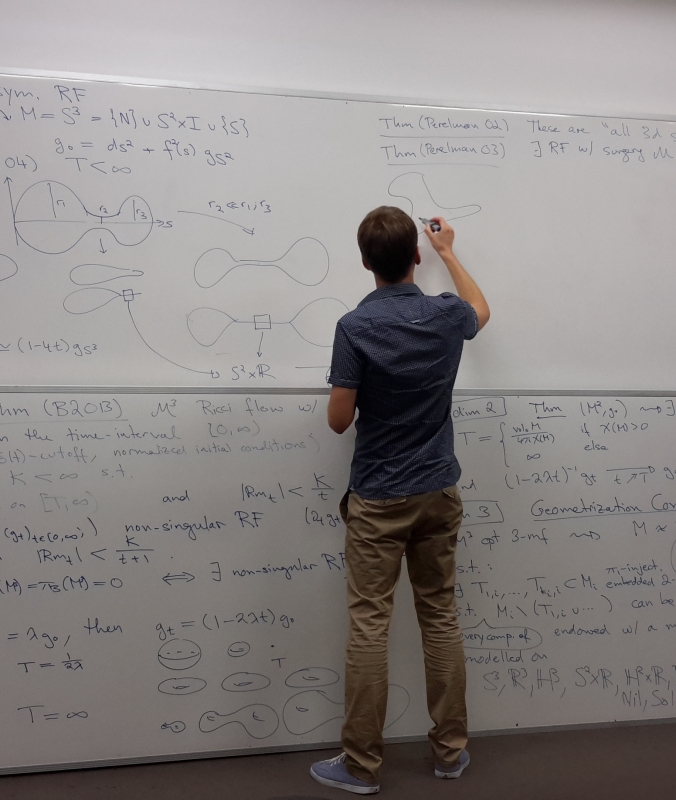 ym. RF
M = S³ = {N} ∪ S²×I ∪ {S}
g₀ = ds² + f²(s) g_S²
04) T < ∞
r₁ r₂ r₃ s
r₂ ≪ r₁, r₃
≃ (1-4t) g_S³
S²×ℝ
Thm (Perelman 02) These are "all 3d s
Thm (Perelman 03) ∃ RF w/ surgery M
hm (B2013) M³ Ricci flow w/
n the time-interval [0,∞)
(t)-cutoff, normalized initial conditions)
K < ∞ s.t.
on [T,∞) and |Rm_t| < K/t
(g_t)_t∈(0,∞) non-singular RF (∂_t g_t
|Rm_t| < K/(t+1)
(M³) = π₃(M³) = 0 ⟺ ∃ non-singular RF
= λg₀, then g_t = (1-2λt) g₀
T = 1/2λ
T
T = ∞
dim 2 Thm (M², g₀) ⇝ ∃
T = { vol₀M/4πχ(M) if χ(M)>0
∞ else
nd (1-2λt)⁻¹ g_t → t↗T
n 3 Geometrization Con
cpt 3-mf ⇝ M ≈
s.t.:
∃ T₁,ᵢ, ..., T_kᵢ,ᵢ ⊂ Mᵢ π₁-inject. embedded 2-
s.t. Mᵢ \ (T₁,ᵢ ∪ ...) can be
every comp. of endowed w/ a m
modelled on
S³, ℝ³, ℍ³, S²×ℝ, ℍ²×ℝ,
Nil, Sol